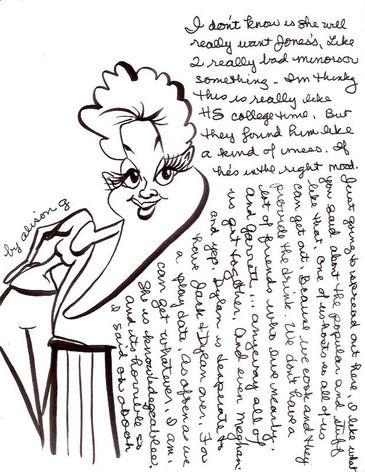 I don't know is she will
really want Jones's. Like
2 really bad
something - Im
this is really like
HS college time. But
they found him like
a kind of mess. If
he's in the right mood.
Just going to spread out here. I like what
you said about the popular and stuff
like that. One of us hosts so all of us
can get out. Because we cook and they
provide the drink. We don't have a
lot of friends who live nearby.
and Garrett... anyway all of
us get together. And even Meghan
and yep. Dylan is desperate to
have Jack & Dylan over. For
a play date. As often as we
can get whatever. I am.
She is knowledgeable
and its horrible so
I said oh
by alison g